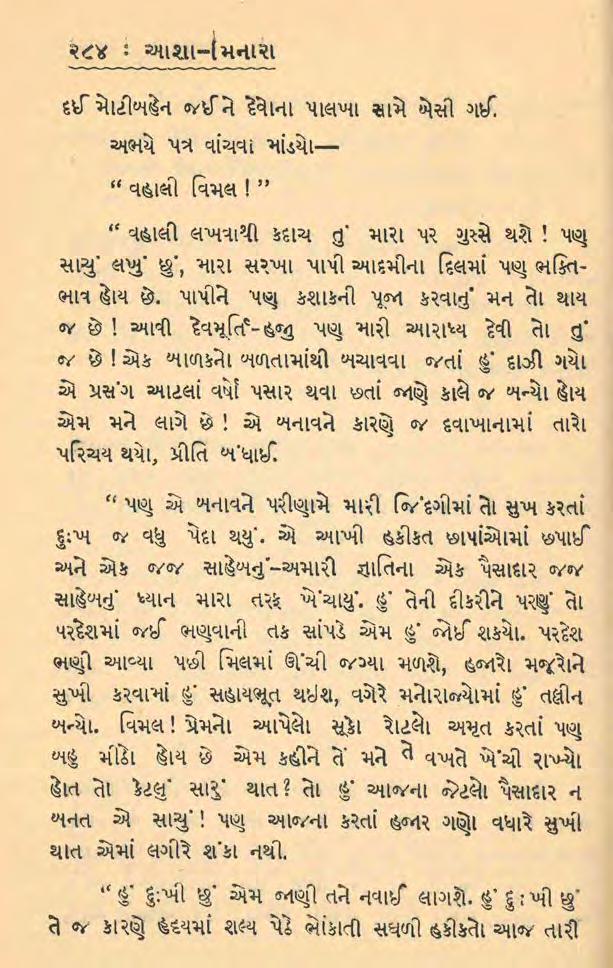 ૨૮૪ : આશા–મિનારા
દઈ મોટીબહેન જઈને દેવોના પાલખા સામે બેસી ગઈ.
અભયે પત્ર વાંચવા માંડયો—
“ વહાલી વિમલ ! ”
“ વહાલી લખવાથી કદાચ તું મારા પર ગુસ્સે થશે ! પણ
સાચું લખું છું, મારા સરખા પાપી આદમીના દિલમાં પણ ભક્તિ-
ભાવ હોય છે. પાપીને પણ કશાકની પૂજા કરવાનું મન તો થાય
જ છે ! આવી દેવમૂર્તિ-હજી પણ મારી આરાધ્ય દેવી તો તું
જ છે ! એક બાળકનો બળતામાંથી બચાવવા જતાં હું દાઝી ગયો
એ પ્રસંગ આટલાં વર્ષો પસાર થવા છતાં જાણે કાલે જ બન્યો હોય
એમ મને લાગે છે ! એ બનાવને કારણે જ દવાખાનામાં તારો
પરિચય થયો, પ્રીતિ બંધાઈ.
“ પણ એ બનાવને પરીણામે મારી જિંદગીમાં તો સુખ કરતાં
દુઃખ જ વધુ પેદા થયું. એ આખી હકીકત છાપાંઓમાં છપાઈ
અને એક જજ સાહેબનું-અમારી જ્ઞાતિના એક પૈસાદાર જજ
સાહેબનું ધ્યાન મારા તરફ ખેંચાયું. હું તેની દીકરીને પરણું તો
પરદેશમાં જઈ ભણવાની તક સાંપડે એમ હું જોઈ શકયો. પરદેશ
ભણી આવ્યા પછી મિલમાં ઊંચી જગ્યા મળશે, હજારો મજૂરોને
સુખી કરવામાં હું સહાયભૂત થઇશ, વગેરે મનોરાજ્યોમાં હું તલ્લીન
બન્યો. વિમલ ! પ્રેમનો આપેલો સૂકો રોટલો અમૃત કરતાં પણ
બહુ મીઠો હોય છે એમ કહીને તેં મને તે વખતે ખેંચી રાખ્યો
હોત તો કેટલું સારું થાત? તો હું આજના જેટલો પૈસાદાર ન
બનત એ સાચું ! પણ આજના કરતાં હજાર ગણો વધારે સુખી
થાત એમાં લગીરે શંકા નથી.
“ હું દુઃખી છું એમ જાણી તને નવાઈ લાગશે. હું દુઃખી છું
તે જ કારણે હૃદયમાં શલ્ય પેઠે ભોંકાતી સઘળી હકીકતો આજ તારી